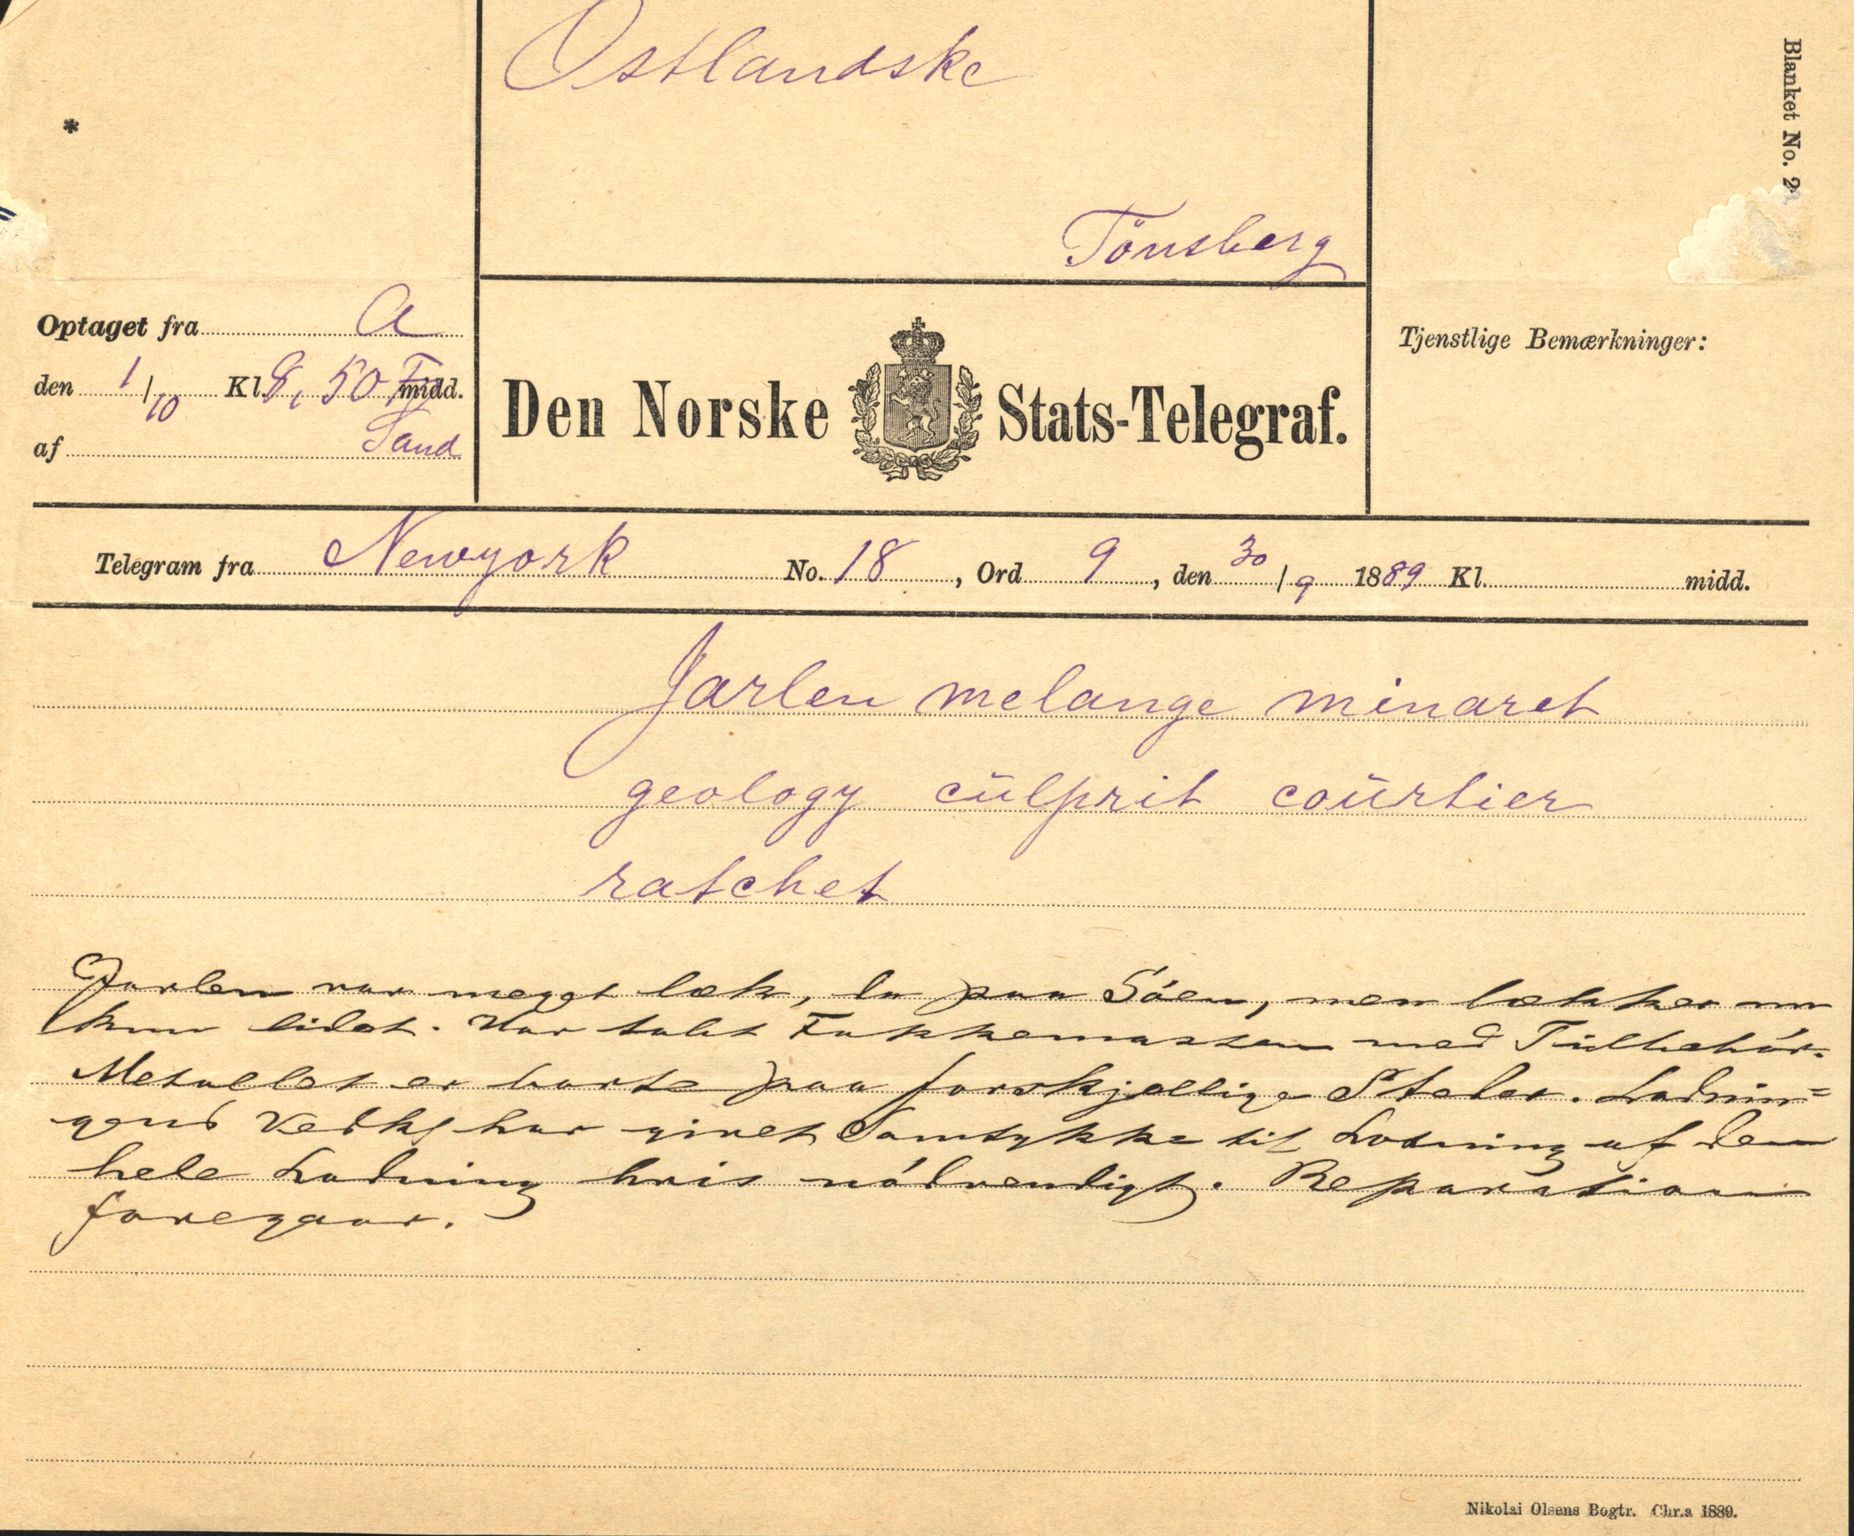 Blanket No. 2
Ostlandske
*
Tönsberg
Optaget fra A
den 1/10 Kl. 8, 50 F midd.
af Sand
Den Norske Stats-Telegraf.
Tjenstlige Bemærkninger:
Telegram fra Newyork No. 18, Ord 9, den 30/9 1889 Kl. midd.
Jarlen melange minaret
geology cülprit coürtier
ratchet
Jarlen var meget læk, da paa Söen, men lækker nu
kun lidet. Har tabt Fokkemasten med Tilbehör.
Metallet er borte paa forskjellige Steder. Ladnin=
gens Vedk har givet Samtykke til Losning af den
hele Ladning hvis nödvendigt. Reparation
foregaar.
Nikolai Olsens Bogtr. Chr.a 1889.